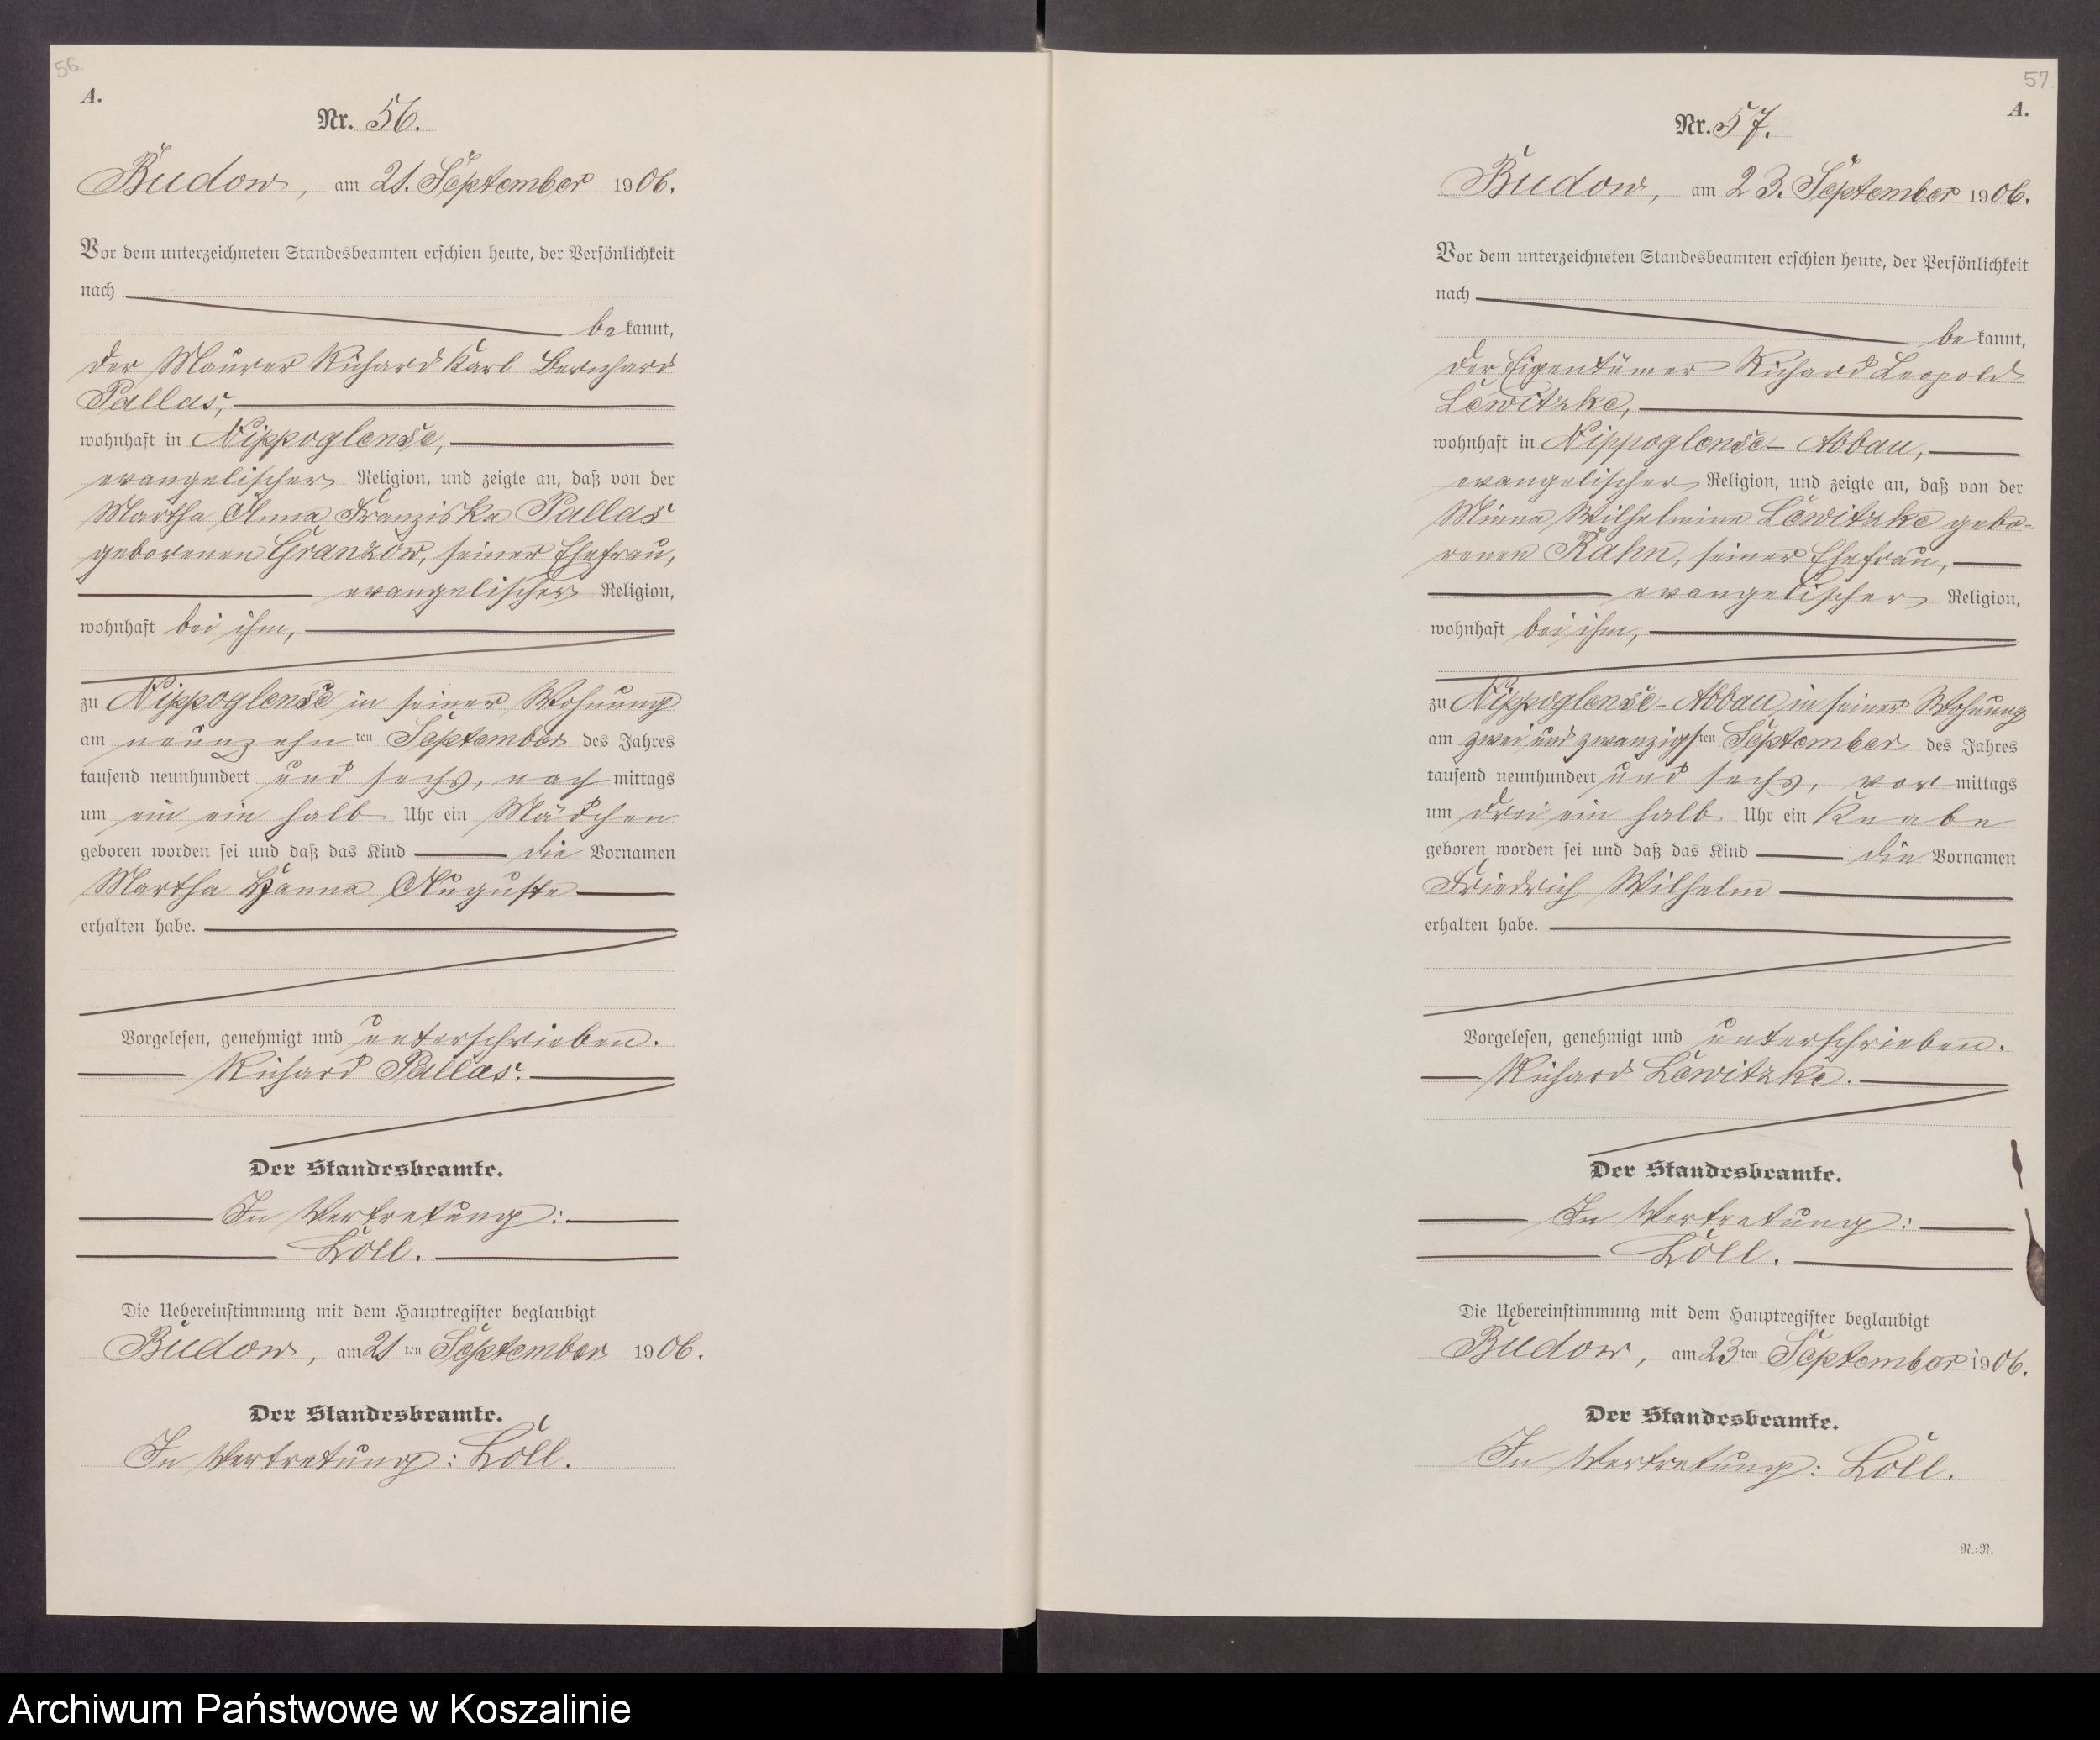 56
A.
Nr. 56.
Budow, am 21. September 1906.
Vor dem unterzeichneten Standesbeamten erschien heute, der Persönlichkeit
nach
bekannt,
der Maurer Richard Karl Bernhard
Pallas,
wohnhaft in Nippoglense,
evangelischer Religion, und zeigte an, daß von der
Martha Anna Franziska Pallas
geborenen Granzow, seiner Ehefrau,
evangelischer Religion,
wohnhaft bei ihm,
zu Nippoglense in seiner Wohnung
am neunzehnten September des Jahres
tausend neunhundert und sechs, nachmittags
um ein ein halb Uhr ein Mädchen
geboren worden sei und daß das Kind die Vornamen
Martha Hanna Auguste
erhalten habe.
Vorgelesen, genehmigt und unterschrieben.
Richard Pallas.
Der Standesbeamte.
In Vertretung:
Löll.
Die Uebereinstimmung mit dem Hauptregister beglaubigt
Budow, am 21ten September 1906.
Der Standesbeamte.
In Vertretung: Löll.
57.
A.
Nr. 57.
Budow, am 23. September 1906.
Vor dem unterzeichneten Standesbeamten erschien heute, der Persönlichkeit
nach
bekannt,
der Eigentümer Richard Leopold
Lewitzke,
wohnhaft in Nippoglense-Abbau,
evangelischer Religion, und zeigte an, daß von der
Minna Wilhelmine Lewitzke gebo-
renen Rahn, seiner Ehefrau,
evangelischer Religion,
wohnhaft bei ihm,
zu Nippoglense-Abbau in seiner Wohnung
am zwei und zwanzigsten September des Jahres
tausend neunhundert und sechs, vormittags
um drei ein halb Uhr ein Knabe
geboren worden sei und daß das Kind die Vornamen
Friedrich Wilhelm
erhalten habe.
Vorgelesen, genehmigt und unterschrieben.
Richard Lewitzke.
Der Standesbeamte.
In Vertretung:
Löll.
Die Uebereinstimmung mit dem Hauptregister beglaubigt
Budow, am 23ten September 1906.
Der Standesbeamte.
In Vertretung: Löll.
N.=R.
Archiwum Państwowe w Koszalinie